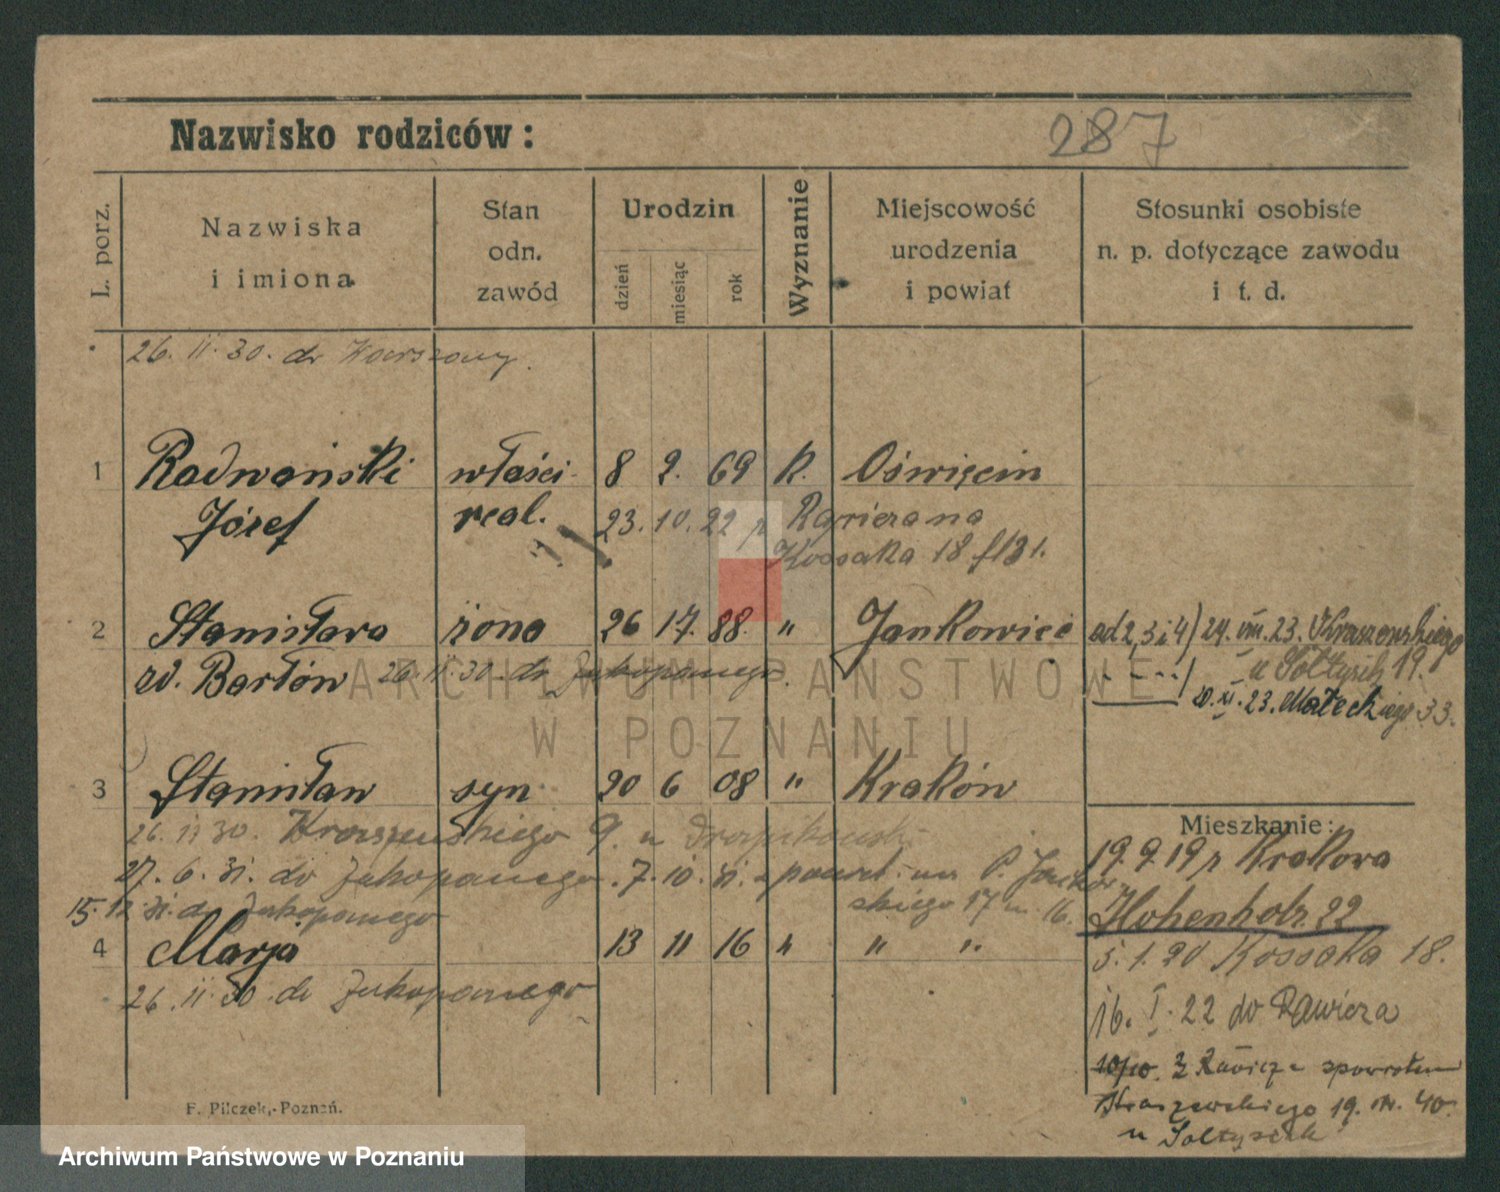 Nazwisko rodziców:
287
L. porz.
Nazwiska
i imiona
Stan
odn.
zawód
Urodzin
dzień
miesiąc
rok
Wyznanie
Miejscowość
urodzenia
i powiat
Stosunki osobiste
n. p. dotyczące zawodu
i t. d.
26. II. 30. do Warszawy.
1 Radwański właści. 8 2. 69 R. Oświęcim
Józef real. 23. 10. 22 z Rawicza na
Kossaka 18
2 Stanisława żona 26 17. 88. " Jankowice ad 2, 3 i 4) 24. VIII. 23. Kraszewskiego
zd. Bartów 26. II. 30. do Zakopanego. u Sołtysik 19.
20. XI. 23. Małeckiego 33.
ARCHIWUM PAŃSTWOWE
W POZNANIU
3 Stanisław syn 20 6 08 " Kraków
26. II 30. Kraszewskiego 9. u
Mieszkanie:
27. 6. 31. do Zakopanego. 7. 10. 31. z powrt. na
19. 9. 19 z Krakowa
15. 12. 31. do Zakopanego skiego 17 m 16.
Hohenholz. 22
4 Marja 13 11 16 " " "
5. 1. 20 Kossaka 18.
26. II. 30. do Zakopanego
16. I. 22 do Rawicza
10/10. z Rawicza spowrotem
Kraszewskiego 19. 40
u Sołtysiak
F. Pilczek,-Poznań.
Archiwum Państwowe w Poznaniu